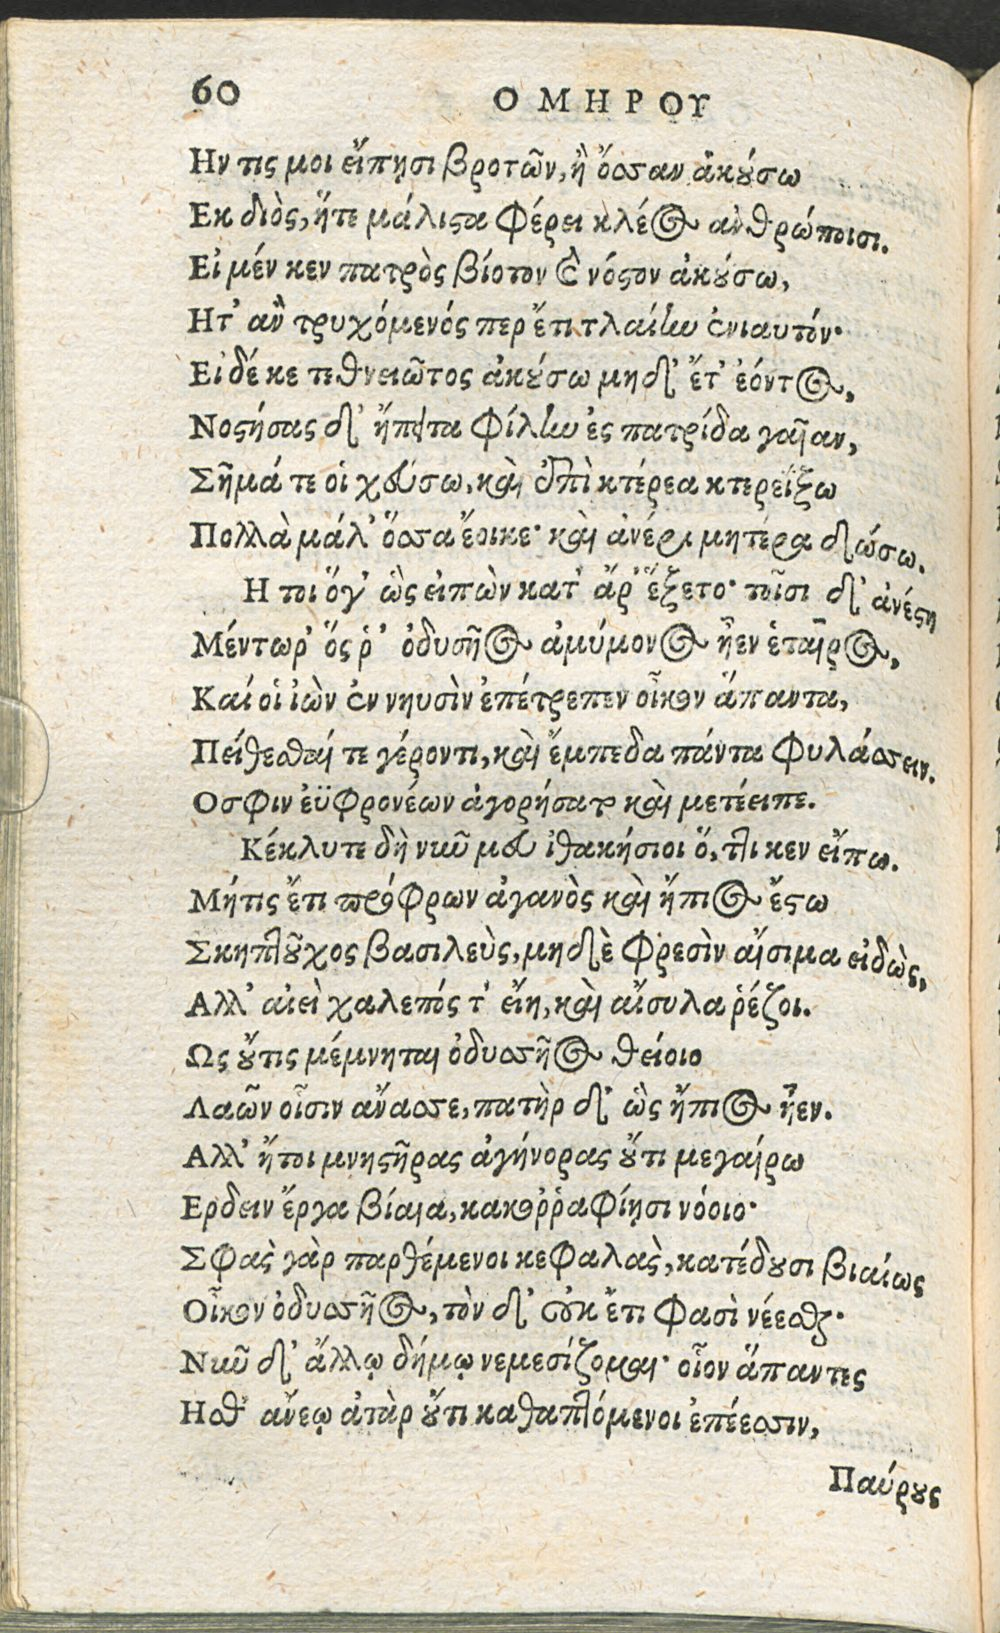 60 ΟΜΗΡΟΥ
Ην τις μοι εἴπῃσι βροτῶν, ἢ ὄσσαν ἀκούσω
Εκ διὸς, ἥτε μάλιστα φέρει κλέος ἀνθρώποισι.
Εἰ μέν κεν πατρὸς βίοτον καὶ νόστον ἀκούσω,
Ητ' ἂν τρυχόμενός περ ἔτι τλαίην ἐνιαυτόν·
Εἰ δέ κε τεθνειῶτος ἀκούσω μηδ' ἔτ' ἐόντος,
Νοστήσας δ' ἤπειτα φίλην ἐς πατρίδα γαῖαν,
Σῆμά τε οἱ χεύσω, καὶ ἐπὶ κτέρεα κτερεΐξω
Πολλὰ μάλ' ὅσσα ἔοικε· καὶ ἀνέρι μητέρα δώσω.
Η τοι ὅγ' ὣς εἰπὼν κατ' ἄρ' ἕζετο· τοῖσι δ' ἀνέστη
Μέντωρ' ὅς ῥ' ὀδυσῆος ἀμύμονος ἦεν ἑταῖρος,
Καί οἱ ἰὼν ἐν νηυσὶν ἐπέτρεπεν οἶκον ἅπαντα,
Πείθεσθαί τε γέροντι, καὶ ἔμπεδα πάντα φυλάσσειν.
Οσφιν ἐϋφρονέων ἀγορήσατο καὶ μετέειπε.
Κέκλυτε δὴ νῦν μευ ἰθακήσιοι ὅ,ττι κεν εἴπω.
Μήτις ἔτι πρόφρων ἀγανὸς καὶ ἤπιος ἔστω
Σκηπτοῦχος βασιλεὺς, μηδὲ φρεσὶν αἴσιμα εἰδὼς,
Αλλ' αἰεὶ χαλεπός τ' εἴη, καὶ αἴσυλα ῥέζοι.
Ως οὔτις μέμνηται ὀδυσσῆος θείοιο
Λαῶν οἷσιν ἄνασσε, πατὴρ δ' ὣς ἤπιος ἦεν.
Αλλ' ἤτοι μνηστῆρας ἀγήνορας οὔτι μεγαίρω
Ερδειν ἔργα βίαια, κακοῤῥαφίῃσι νόοιο·
Σφὰς γὰρ παρθέμενοι κεφαλὰς, κατέδουσι βιαίως
Οἶκον ὀδυσσῆος, τὸν δ' οὐκ ἔτι φασὶ νέεσθαι·
Νῦν δ' ἄλλῳ δήμῳ νεμεσίζομαι· οἷον ἅπαντες
Ησθ' ἄνεῳ ἀτὰρ οὔτι καθαπτόμενοι ἐπέεσσιν,
Παύρους